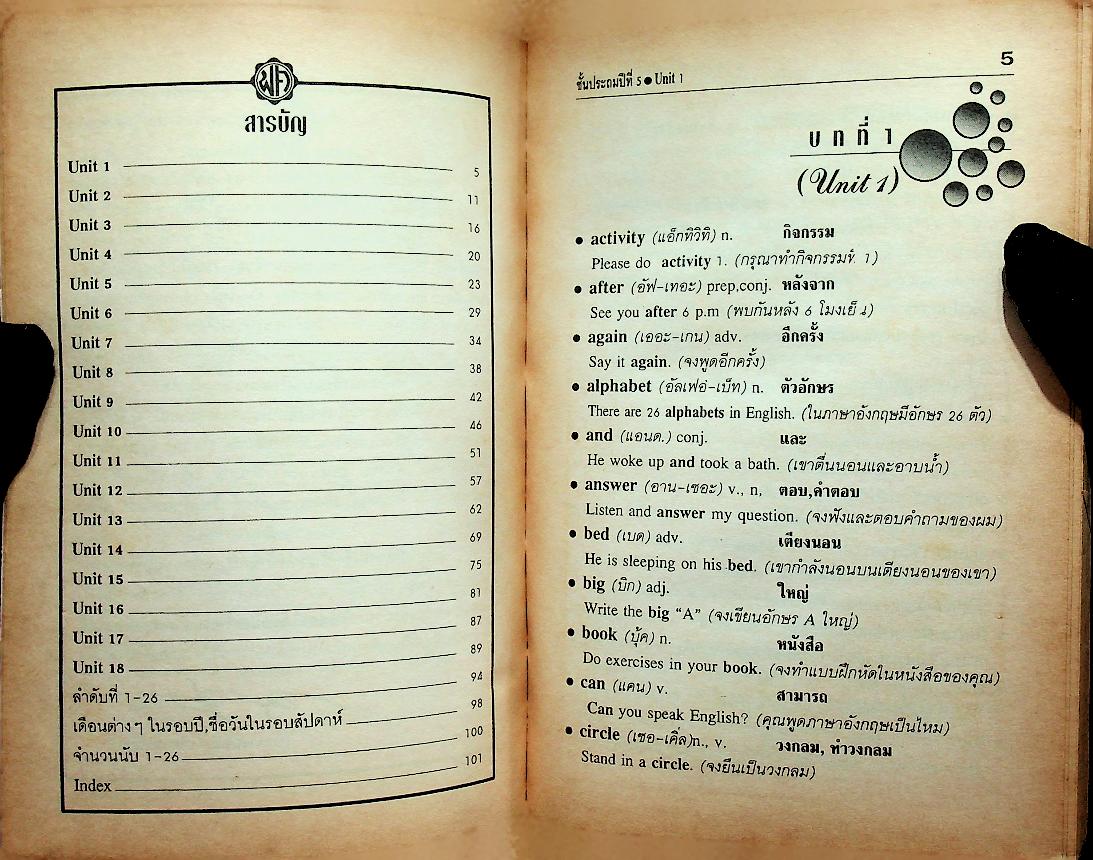 สารบัญ
Unit 1 5
Unit 2 11
Unit 3 16
Unit 4 20
Unit 5 23
Unit 6 29
Unit 7 34
Unit 8 38
Unit 9 42
Unit 10 46
Unit 11 51
Unit 12 57
Unit 13 62
Unit 14 69
Unit 15 75
Unit 16 81
Unit 17 87
Unit 18 89
ลำดับที่ 1-26 94
เดือนต่างๆ ในรอบปี,ชื่อวันในรอบสัปดาห์ 98
จำนวนนับ 1-26 100
Index 101
5
ชั้นประถมปีที่ 5 ● Unit 1
บทที่ 1
(Unit 1)
● activity (แอ็กทิวิทิ) n. กิจกรรม
Please do activity 1. (กรุณาทำกิจกรรมที่ 1)
● after (อัฟ-เทอะ) prep,conj. หลังจาก
See you after 6 p.m (พบกันหลัง 6 โมงเย็น)
● again (เออะ-เกน) adv. อีกครั้ง
Say it again. (จงพูดอีกครั้ง)
● alphabet (อัลเฟอ์-เบ็ท) n. ตัวอักษร
There are 26 alphabets in English. (ในภาษาอังกฤษมีอักษร 26 ตัว)
● and (แอนด.) conj. และ
He woke up and took a bath. (เขาตื่นนอนและอาบน้ำ)
● answer (อาน-เซอะ) v., n, ตอบ,คำตอบ
Listen and answer my question. (จงฟังและตอบคำถามของผม)
● bed (เบด) adv. เตียงนอน
He is sleeping on his bed. (เขากำลังนอนบนเตียงนอนของเขา)
● big (บิก) adj. ใหญ่
Write the big “A” (จงเขียนอักษร A ใหญ่)
● book (บุ้ค) n. หนังสือ
Do exercises in your book. (จงทำแบบฝึกหัดในหนังสือของคุณ)
● can (แคน) v. สามารถ
Can you speak English? (คุณพูดภาษาอังกฤษเป็นไหม)
● circle (เซอ-เคิ่ล)n., v. วงกลม, ทำวงกลม
Stand in a circle. (จงยืนเป็นวงกลม)